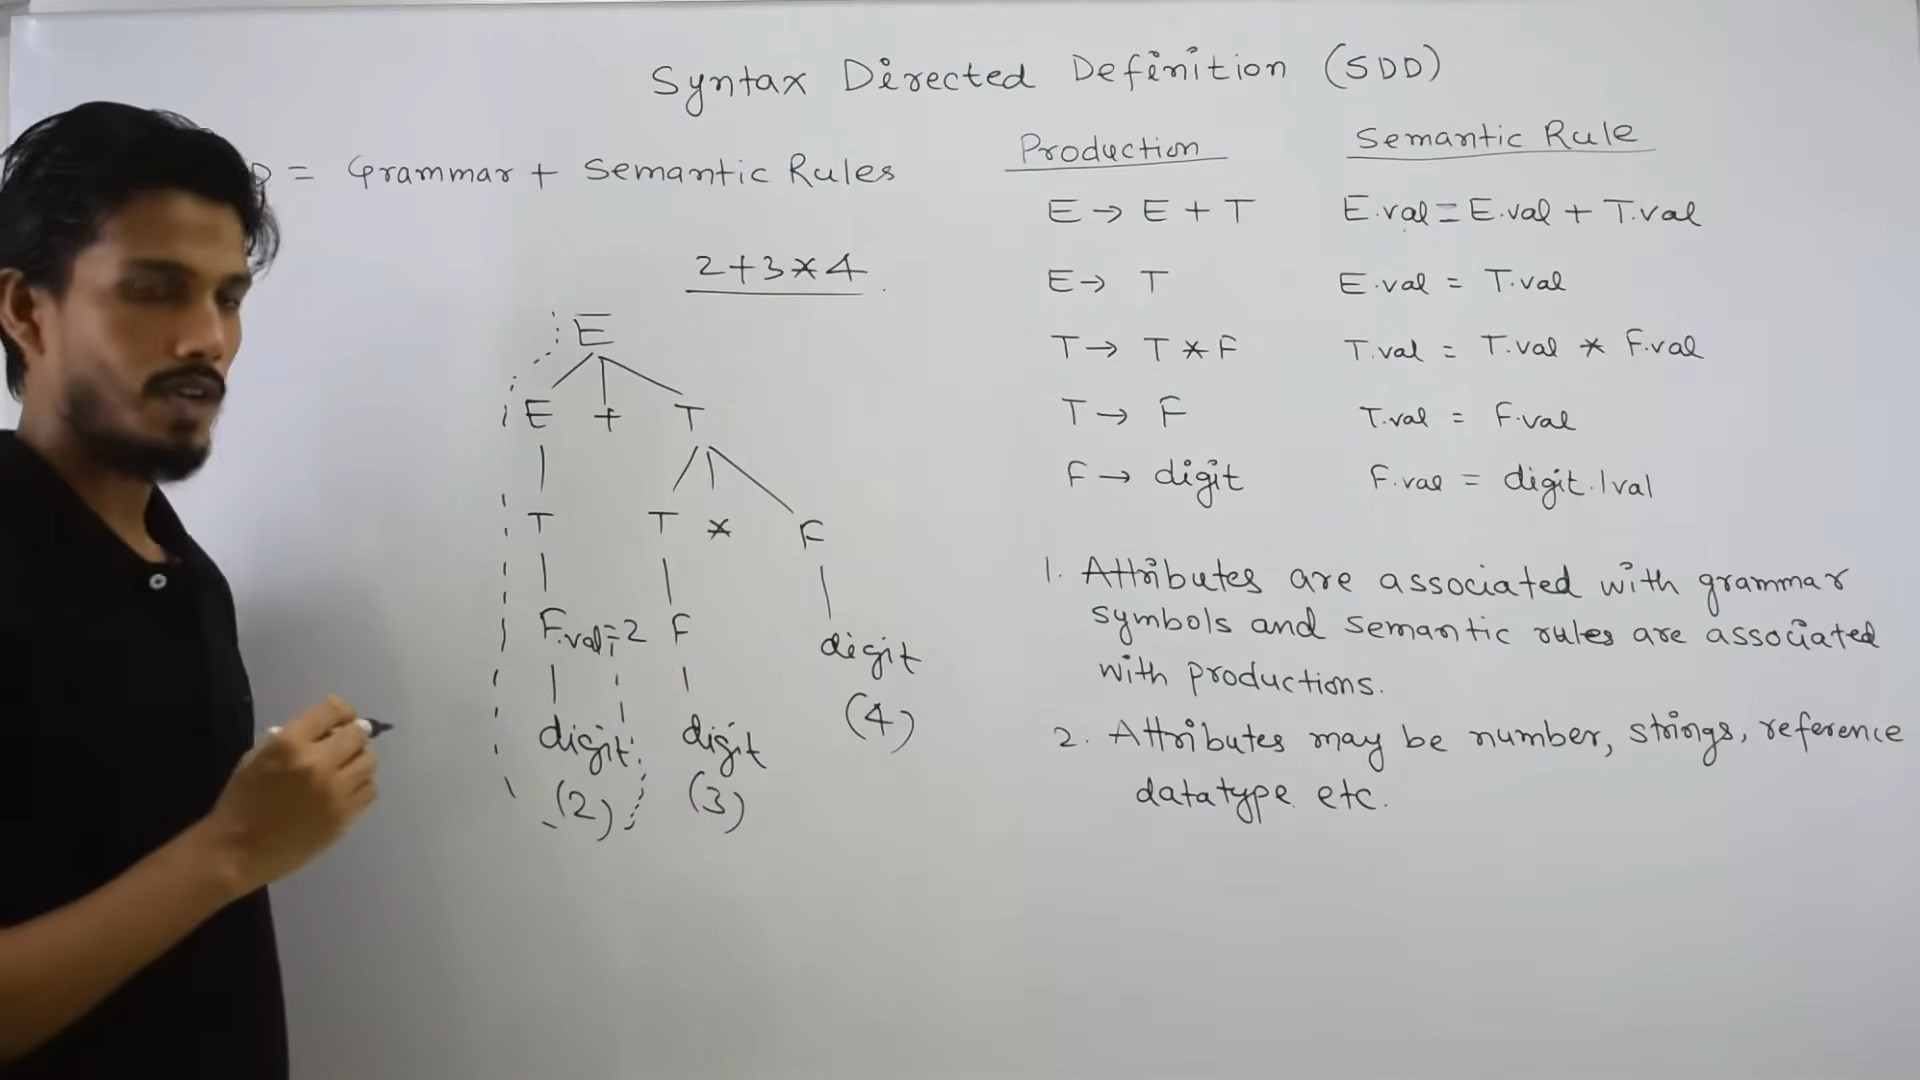 Syntax Directed Definition (SDD)
D = Grammar + Semantic Rules
2+3*4
E
E + T
T T * F
F.val=2 F digit
digit digit (4)
(2) (3)
Production Semantic Rule
E → E + T E.val = E.val + T.val
E → T E.val = T.val
T → T * F T.val = T.val * F.val
T → F T.val = F.val
F → digit F.val = digit.lval
1. Attributes are associated with grammar
symbols and semantic rules are associated
with productions.
2. Attributes may be number, strings, reference
datatype etc.